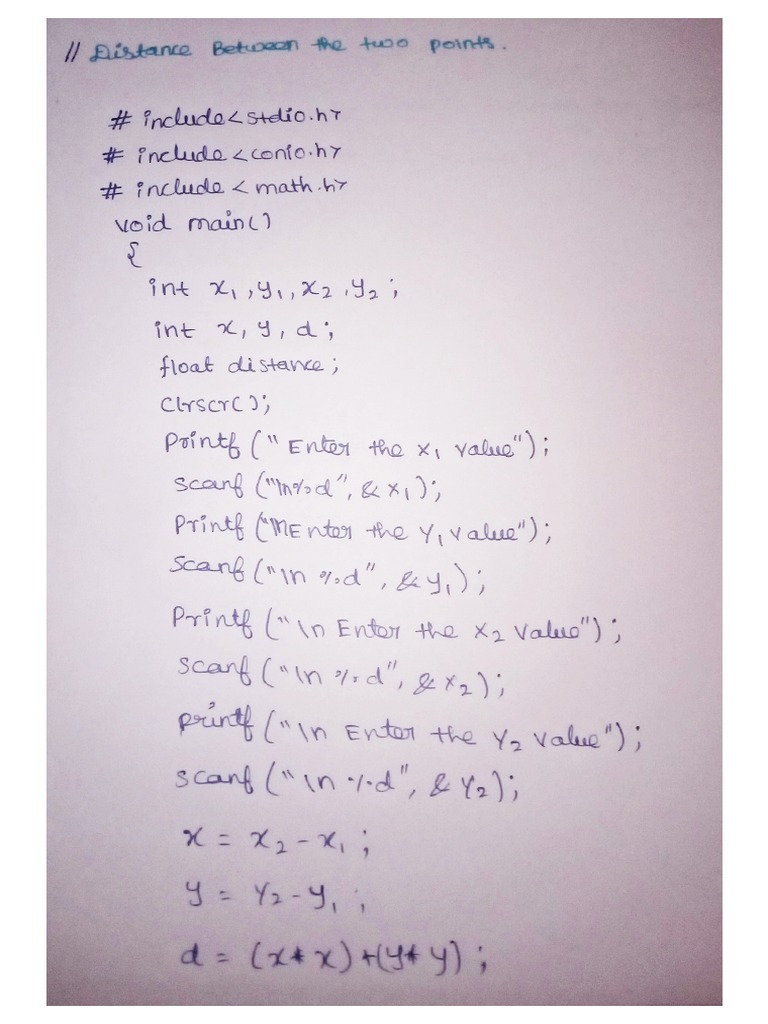 // Distance Between the two points.
# include<stdio.h>
# include<conio.h>
# include<math.h>
void main()
{
int x1,y1,x2,y2;
int x,y,d;
float distance;
Clrscr();
Printf("Enter the x1 value");
Scanf("\n%d",&x1);
Printf("\nEnter the Y1 value");
Scanf("\n %d",&y1);
Printf("\n Enter the x2 value");
Scanf("\n %d",&x2);
printf("\n Enter the Y2 value");
scanf("\n %d",&Y2);
x = x2-x1;
y = Y2-y1;
d = (x*x)+(y*y);